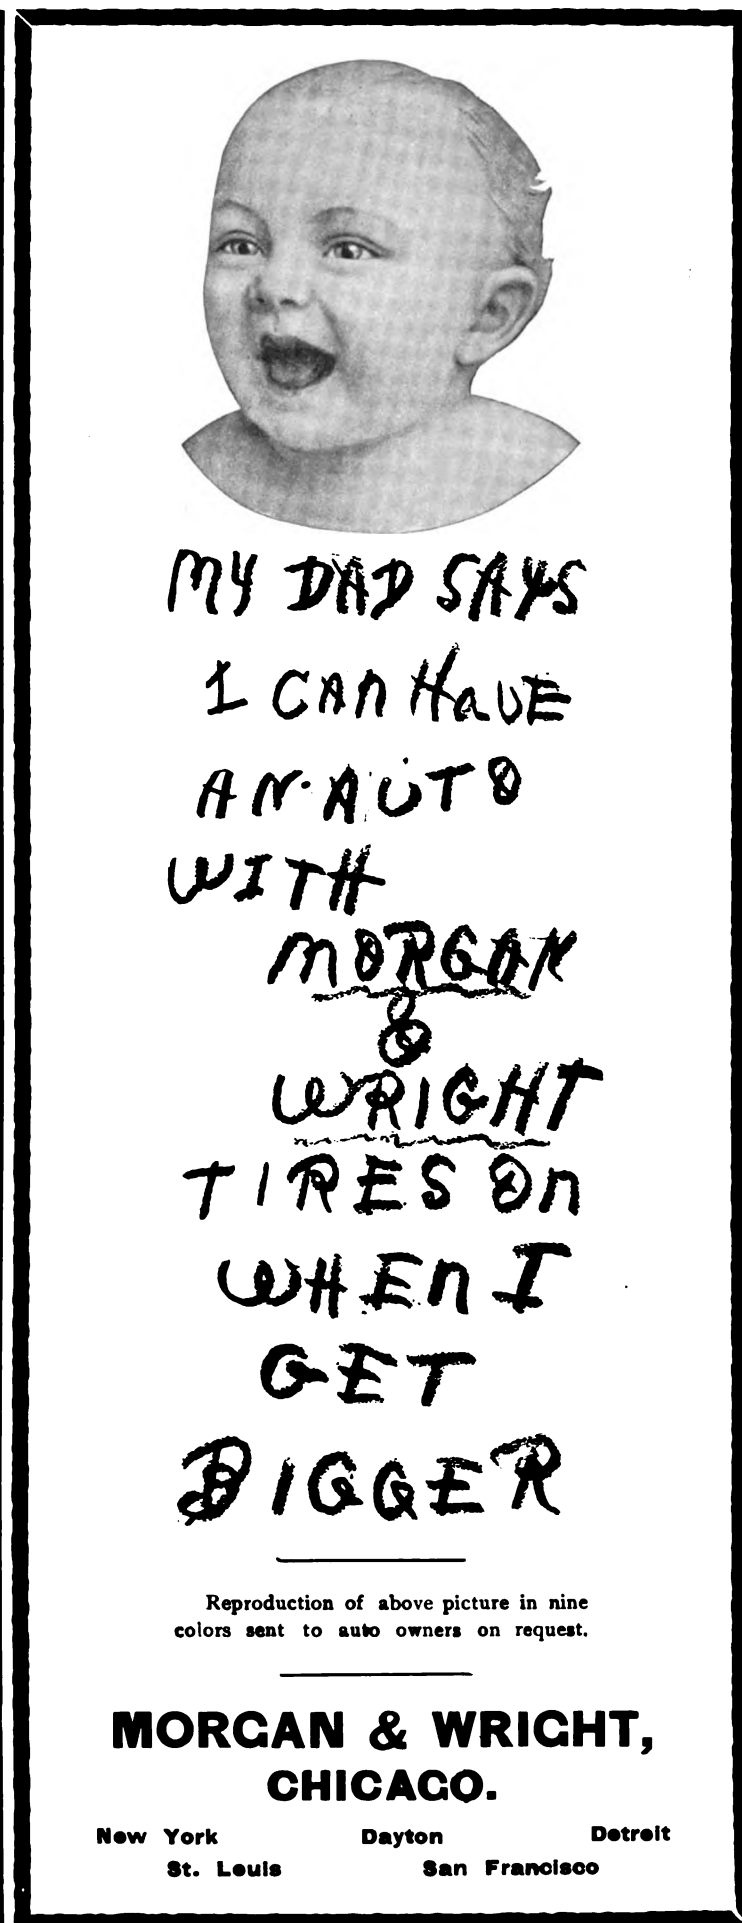 MY DAD SAYS
I CAN HAVE
AN AUTO
WITH
MORGAN
&
WRIGHT
TIRES ON
WHEN I
GET
BIGGER
Reproduction of above picture in nine
colors sent to auto owners on request.
MORGAN & WRIGHT,
CHICAGO.
New York Dayton Detroit
St. Louis San Francisco